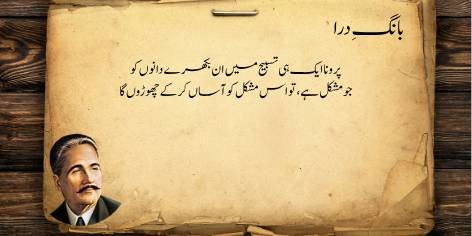 بانگِ درا
پرونا ایک ہی تسبیح میں ان بکھرے دانوں کو
جو مشکل ہے، تو اس مشکل کو آساں کر کے چھوڑوں گا